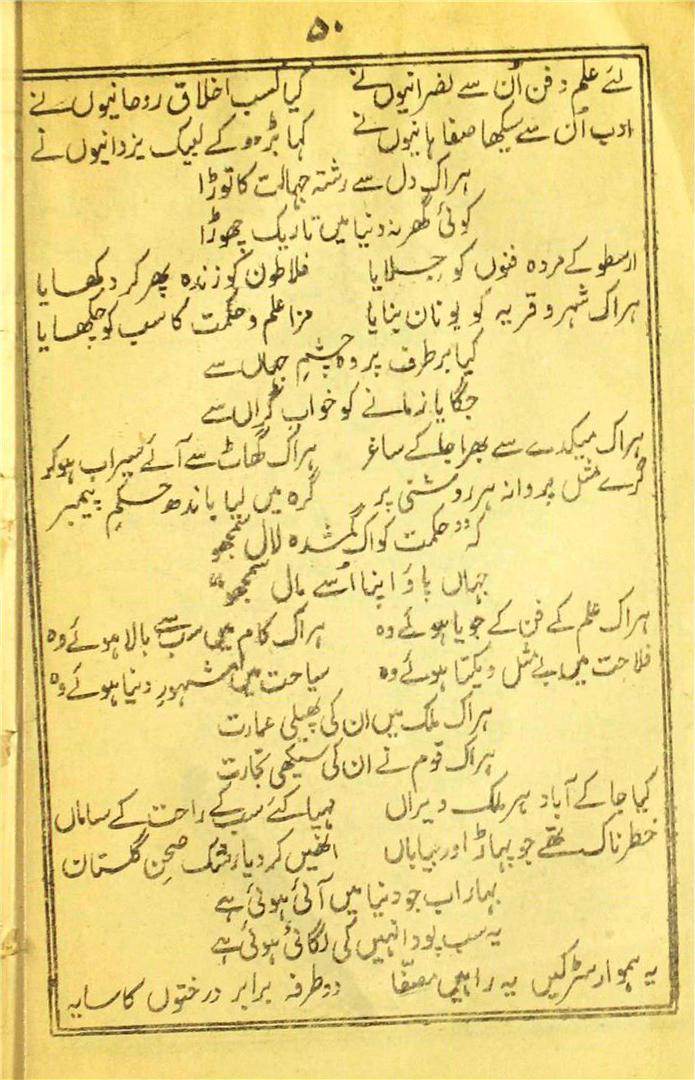 ۵۰
لئے علم و فن اُن سے نصرانیوں نے کیا کسب اخلاق روحانیوں نے
ادب اُن سے سیکھا صفاہانیوں نے کہا بڑھ کے لبیک یزدانیوں نے
ہر اک دل سے رشتہ جہالت کا توڑا
کوئی گھر نہ دنیا میں تاریک چھوڑا
ارسطو کے مردہ فنوں کو جِلایا فلاطون کو زندہ پھر کر دکھایا
ہر اک شہر و قریہ کو یونان بنایا مزا علم و حکمت کا سب کو چکھایا
کیا برطرف پردہ چشمِ جہاں سے
جگایا زمانے کو خواب گراں سے
ہر اک میکدے سے بھرا جا کے ساغر ہر اک گھاٹ سے آئے سیراب ہو کر
گرے مثل پروانہ ہر روشنی پر گرہ میں لیا باندھ حکمِ پیمبر
کہ ”حکمت کو اک گمشدہ لال سمجھو
جہاں پاؤ اپنا اُسے مال سمجھو“
ہر اک علم کے فن کے جویا ہوئے وہ ہر اک کام میں سب سے بالا ہوئے وہ
فلاحت میں بے مثل و یکتا ہوئے وہ سیاحت میں مشہورِ دنیا ہوئے وہ
ہر اک ملک میں ان کی پھیلی عمارت
ہر اک قوم نے ان کی سیکھی تجارت
کیا جا کے آباد ہر ملک ویراں مہیا کئے سب کے راحت کے ساماں
خطرناک تھے جو پہاڑ اور بیاباں اُنھیں کر دیا رشک صحنِ گلستان
بہار اب جو دنیا میں آئی ہوئی ہے
یہ سب پود انہیں کی لگائی ہوئی ہے
یہ ہموار سڑکیں یہ راہیں مصفّا دو طرفہ برابر درختوں کا سایہ